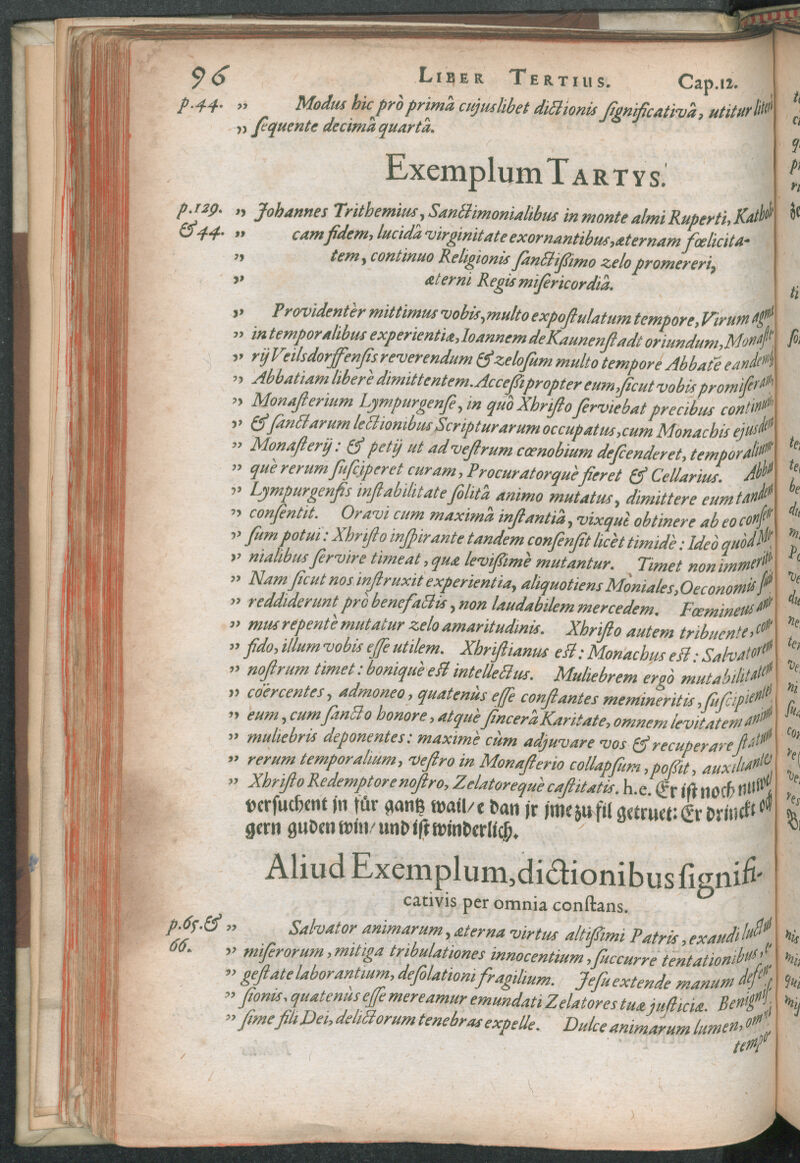 96 LIBER TERTIUS. Cap.12.
p.44. „ Modus hic prò primâ cujuslibet dictionis significativâ, utitur
„ sequente decimâ quartâ.
Exemplum TARTYS.
p.129. „ Johannes Trithemius, Sanctimonialibus in monte almi Ruperti, Katho
&44. „ cam fidem, lucidâ virginitate exornantibus, æternam fœlicita-
„ tem, continuo Religionis sanctißimo zelo promereri,
„ æterni Regis misericordiâ.
„ Providentèr mittimus vobis, multo expostulatum tempore, Virum
„ in temporalibus experientiæ, Ioannem de Kaunenstadt oriundum, Monast
„ rij Veilsdorffensis reverendum & zelosum multo tempore Abbatē eandem
„ Abbatiam liberè dimittentem. Accessi propter eum, sicut vobis promiseram
„ Monasterium Lympurgense, in quò Xhristo serviebat precibus continuis
„ & sanctarum lectionibus Scripturarum occupatus, cum Monachis ejusdem
„ Monasterij: & petij ut ad vestrum cœnobium descenderet, temporalium-
„ què rerum susciperet curam, Procuratorquè fieret & Cellarius. Abbas
„ Lympurgensis instabilitate solitâ animo mutatus, dimittere eum tandem
„ consentit. Oravi cum maximâ instantiâ, vixquè obtinere ab eo consen
„ sum potui: Xhristo inspirante tandem consensit licèt timidè: Ideò quòd Mo
„ nialibus servire timeat, quæ levißimè mutantur. Timet non immeritò
„ Nam sicut nos instruxit experientia, aliquotiens Moniales, Oeconomis suis
„ reddiderunt prò benefactis, non laudabilem mercedem. Fœmineus ani
„ mus repentè mutatur zelo amaritudinis. Xhristo autem tribuente, con
„ fido, illum vobis esse utilem. Xhristianus est: Monachus est: Salvatorem
„ nostrum timet: boniquè est intellectus. Muliebrem ergò mutabilitatem
„ coërcentes, admoneo, quatenùs esse constantes memineritis, suscipientes
„ eum, cum sancto honore, atquè sincerâ Karitate, omnem levitatem animi
„ muliebris deponentes: maximè cùm adjuvare vos & recuperare statum
„ rerum temporalium, vestro in Monasterio collapsum, poßit, auxiliante
„ Xhristo Redemptore nostro, Zelatorequè castitatis. h.e. Er ist noch
versuchent jn für gantz wail/e dan jr jme zu fil getruet: Er drinckt och
gern guden win/ und ist winderlich.
Aliud Exemplum, dictionibus signifi-
cativis per omnia constans.
p.65.& „ Salvator animarum, æterna virtus altißimi Patris, exaudi luctus
66. „ miserorum, mitiga tribulationes innocentium, succurre tentationibus,
„ gestate laborantium, desolationi fragilium. Jesu extende manum defen-
„ sionis, quatenùs esse mereamur emundati Zelatores tuæ justiciæ. Benignis-
„ sime fili Dei, delictorum tenebras expelle. Dulce animarum lumen,
tempo-